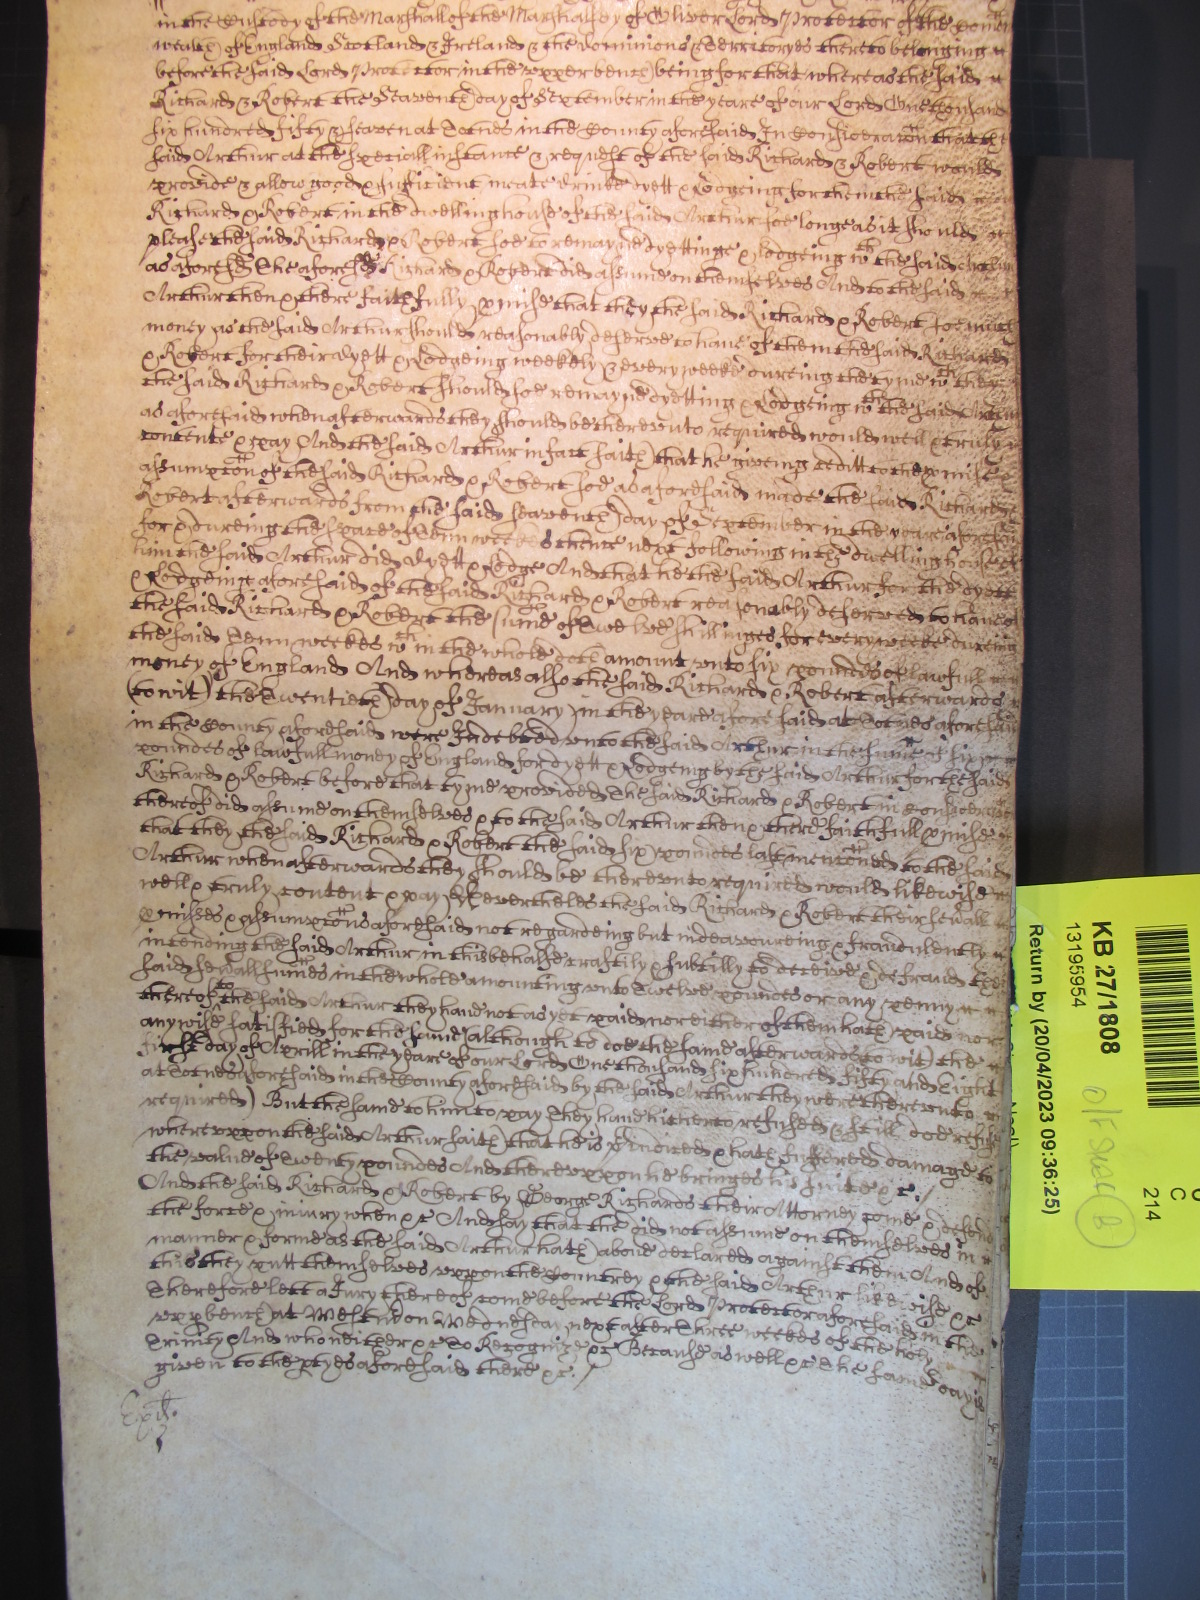 in the Custody of the Marshall of the Marshalsey of Oliver Lord Protector of the Comon
wealth of England Scotland & Ireland & the Dominions & Territoryes thereto belonging
before the said Lord Protector in the upper bench being for that whereas the said
Richard & Robert the Seaventh day of September in the yeare of our Lord One thousand
six hundred fifty & seaven at Totnes in the County aforesaid In Consideracon that the
said Arthur at the speciall instance & request of the said Richard & Robert would
provide & allow good & sufficient meate drinke dyett & Lodgeing for them the said
Richard & Robert in the dwelling house of the said Arthur soe longe as it should
please the said Richard & Robert soe to remayne dyettinge & Lodgeing wth the said Arthur
as aforesd The aforesd Richard & Robert did assume on themselves And to the said
Arthur then & there faithfully pmise that they the said Richard & Robert soe much
money as the said Arthur should reasonably deserve to have of them the said Richard
& Robert for their dyett & Lodgeing weekely & every weeke dureing the tyme wch they
the said Richard & Robert should soe remayne dyetting & Lodgeing wth the said Arthur
as aforesaid when afterwards they should be thereunto required would well & truly
contente & pay And the said Arthur in fact saith that he giveing creditt to the pmise &
assumpcon of the said Richard & Robert soe as aforesaid made the said Richard &
Robert afterwards from the said seaventh day of September in the yeare aforesaid
for & dureing the space of Tenn weekes thence next following in the dwelling house of
him the said Arthur did dyett & Lodge And that he the said Arthur for the dyett
& Lodgeing aforesaid of the said Richard & Robert reasonably deserved to have of
the said Richard & Robert the sume of Twelve shillinges for every weeke dureing
the said Tenn weekes wch in the whole doth amount unto six poundes of lawfull
money of England And whereas also the said Richard & Robert afterwards
(to wit) the Twentieth day of January in the yeare aforesaid at Totnes aforesaid
in the County aforesaid were Indebted unto the said Arthur in the sume of six
poundes of lawfull money of England for dyett & Lodgeing by the said Arthur for the said
Richard & Robert before that tyme provided The said Richard & Robert in Consideracon
thereof did assume on themselves & to the said Arthur then & there faithfull pmise
that they the said Richard & Robert the said six poundes last menconed to the said
Arthur when afterwards they should be thereunto required would likewise
well & truly content & pay Neverthelesse the said Richard & Robert their sevall
pmisses & assumpcons aforesaid not regardeing but indeavoureing & fraudulently
intending the said Arthur in this behalfe craftily & subtilly to deceive & defraud the
said sevall sumes in the whole amounting unto Twelve poundes or any penny
thereof to the said Arthur they have not as yet paid nor either of them hath paid nor
any wise satisfied for the same (although to doe the same afterwards to wit) the
First day of Aprill in the yeare of our Lord One thousand six hundred fifty and Eight
at Totnes aforesaid in the County aforesaid by the said Arthur they were thereunto
required) But the same to him to pay They have hitherto refused & still doe refuse
whereuppon the said Arthur saith that he is pindiced & hath suffered damage to
the value of Twenty poundes And thereuppon he bringes his suite &c./
And the said Richard & Robert by George Richards their Attorney come & defend
the force & injury when &c And say that they did not assume on themselves in
manner & forme as the said Arthur hath above declared against them And of
this they putt themselves uppon the Countrey & the said Arthur likewise &c
Therefore lett a Jury thereof come before the Lord Protector aforesaid in the
upp bench at Westm on Wednesday next after Three weekes of the holy
Trinity And who neither &c To Recognize &c Because as well &c The same day is
given to the ptyes aforesaid there &c./
KB 27/1808
13195954
Return by (20/04/2023 09:36:25)
C
214